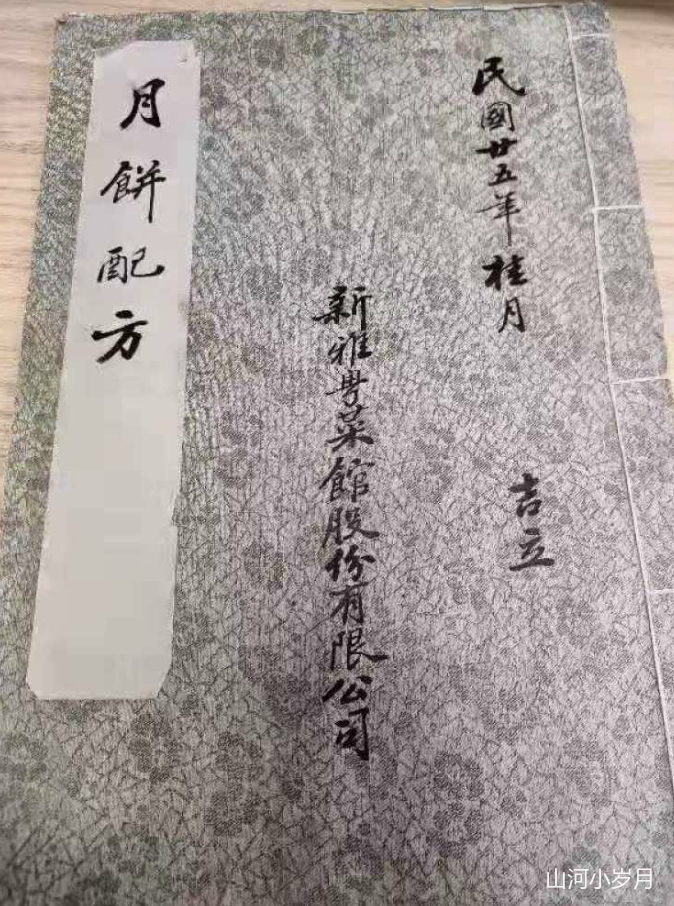 民國廿五年桂月
吉立
新雅粤菜館股份有限公司
月餅配方
山河小岁月